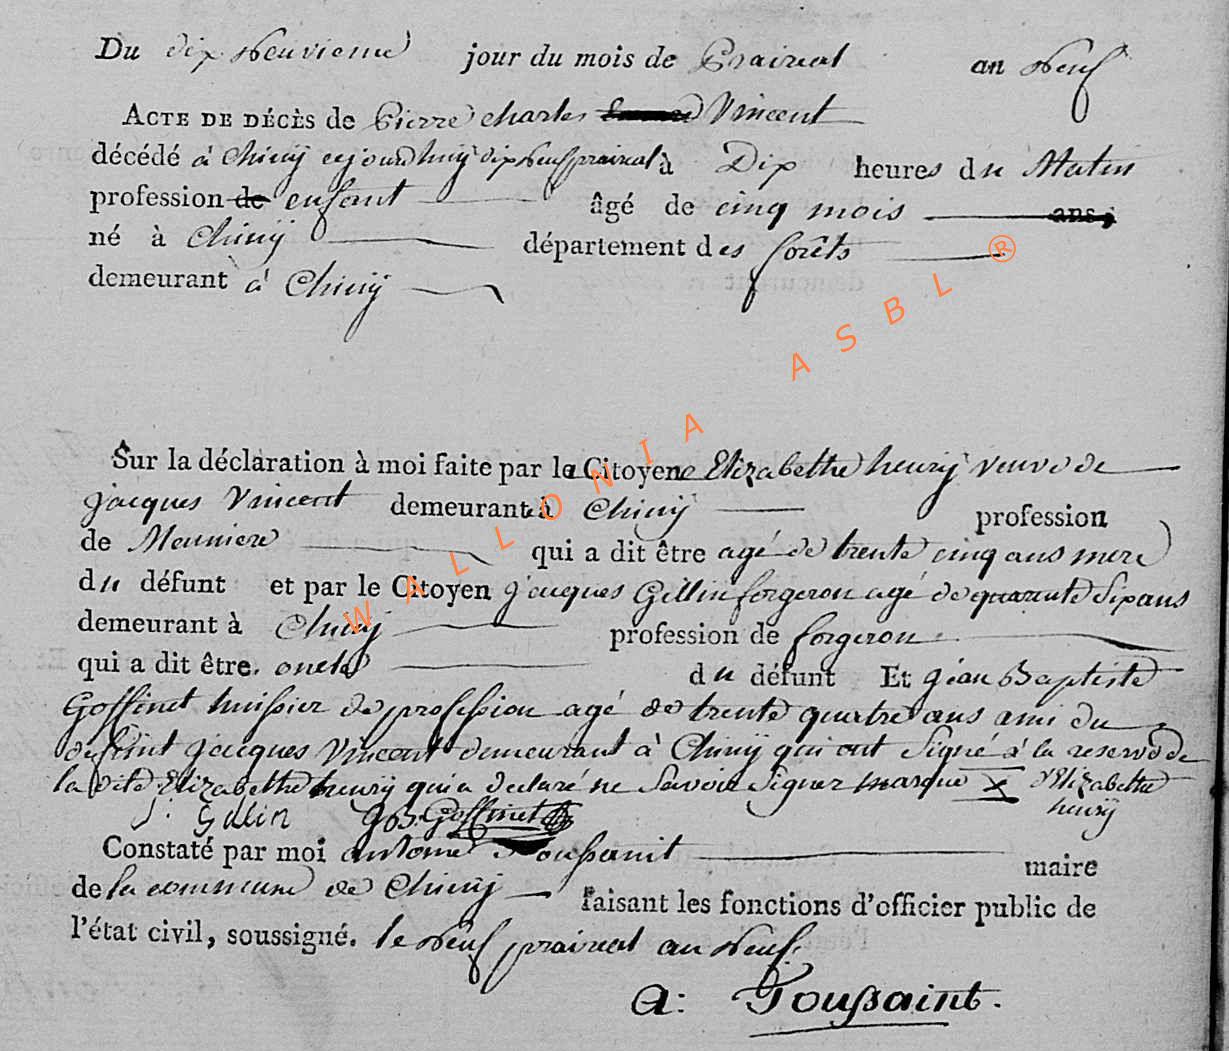 Du dix neuvieme jour du mois de Prairial an neuf
ACTE DE DÉCÈS de Pierre charles Vincent
décédé à Chinÿ cejourdhuÿ dix neuf prairial à Dix heures du Matin
profession de enfant âgé de cinq mois ans,
né à Chinÿ département des forêts
demeurant à Chinÿ
Sur la déclaration à moi faite par la Citoyene Elizabethe henrÿ veuve de
jacques Vincent demeurant à Chinÿ profession
de Meuniere qui a dit être agé de trente cinq ans mere
du défunt et par le Citoyen jacques Gillin forgeron agé de quarente Six ans
demeurant à Chinÿ profession de forgeron
qui a dit être oncle du défunt Et géan Baptiste
Goffinet huissier de profession agé de trente quatre ans ami du
defunt jacques Vincent demeurant à Chinÿ qui ont Signé à la reserve de
la dite Elizabethe henrÿ qui a declaré ne Savoir Signer marque X d'Elizabethe
henrÿ
J. Gillin JB. Goffinet
Constaté par moi antoine Toussaint maire
de la commune de Chinÿ faisant les fonctions d'officier public de
l'état civil, soussigné. le neuf prairial an neuf.
A: Toussaint.
WALLONIA ASBL ®